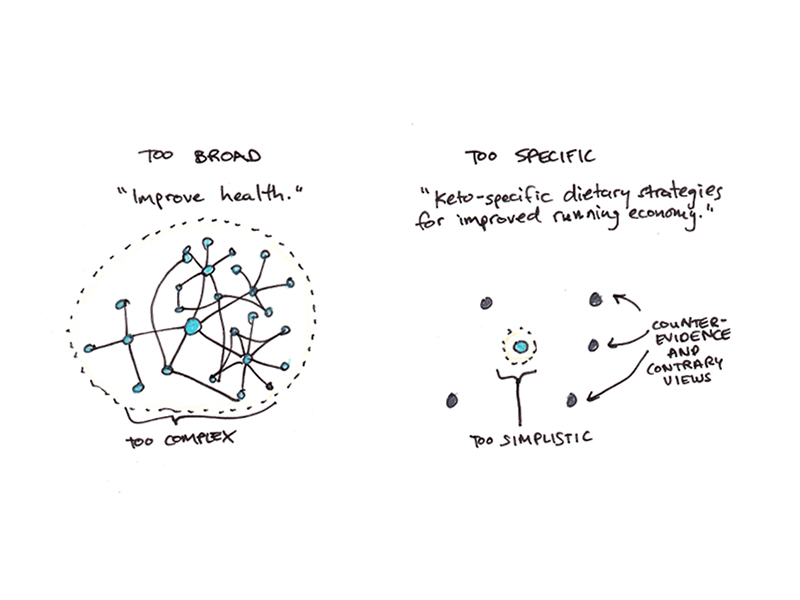 TOO BROAD
"Improve health."
TOO COMPLEX
TOO SPECIFIC
"Keto-specific dietary strategies
for improved running economy."
COUNTER-
EVIDENCE
AND
CONTRARY
VIEWS
TOO SIMPLISTIC